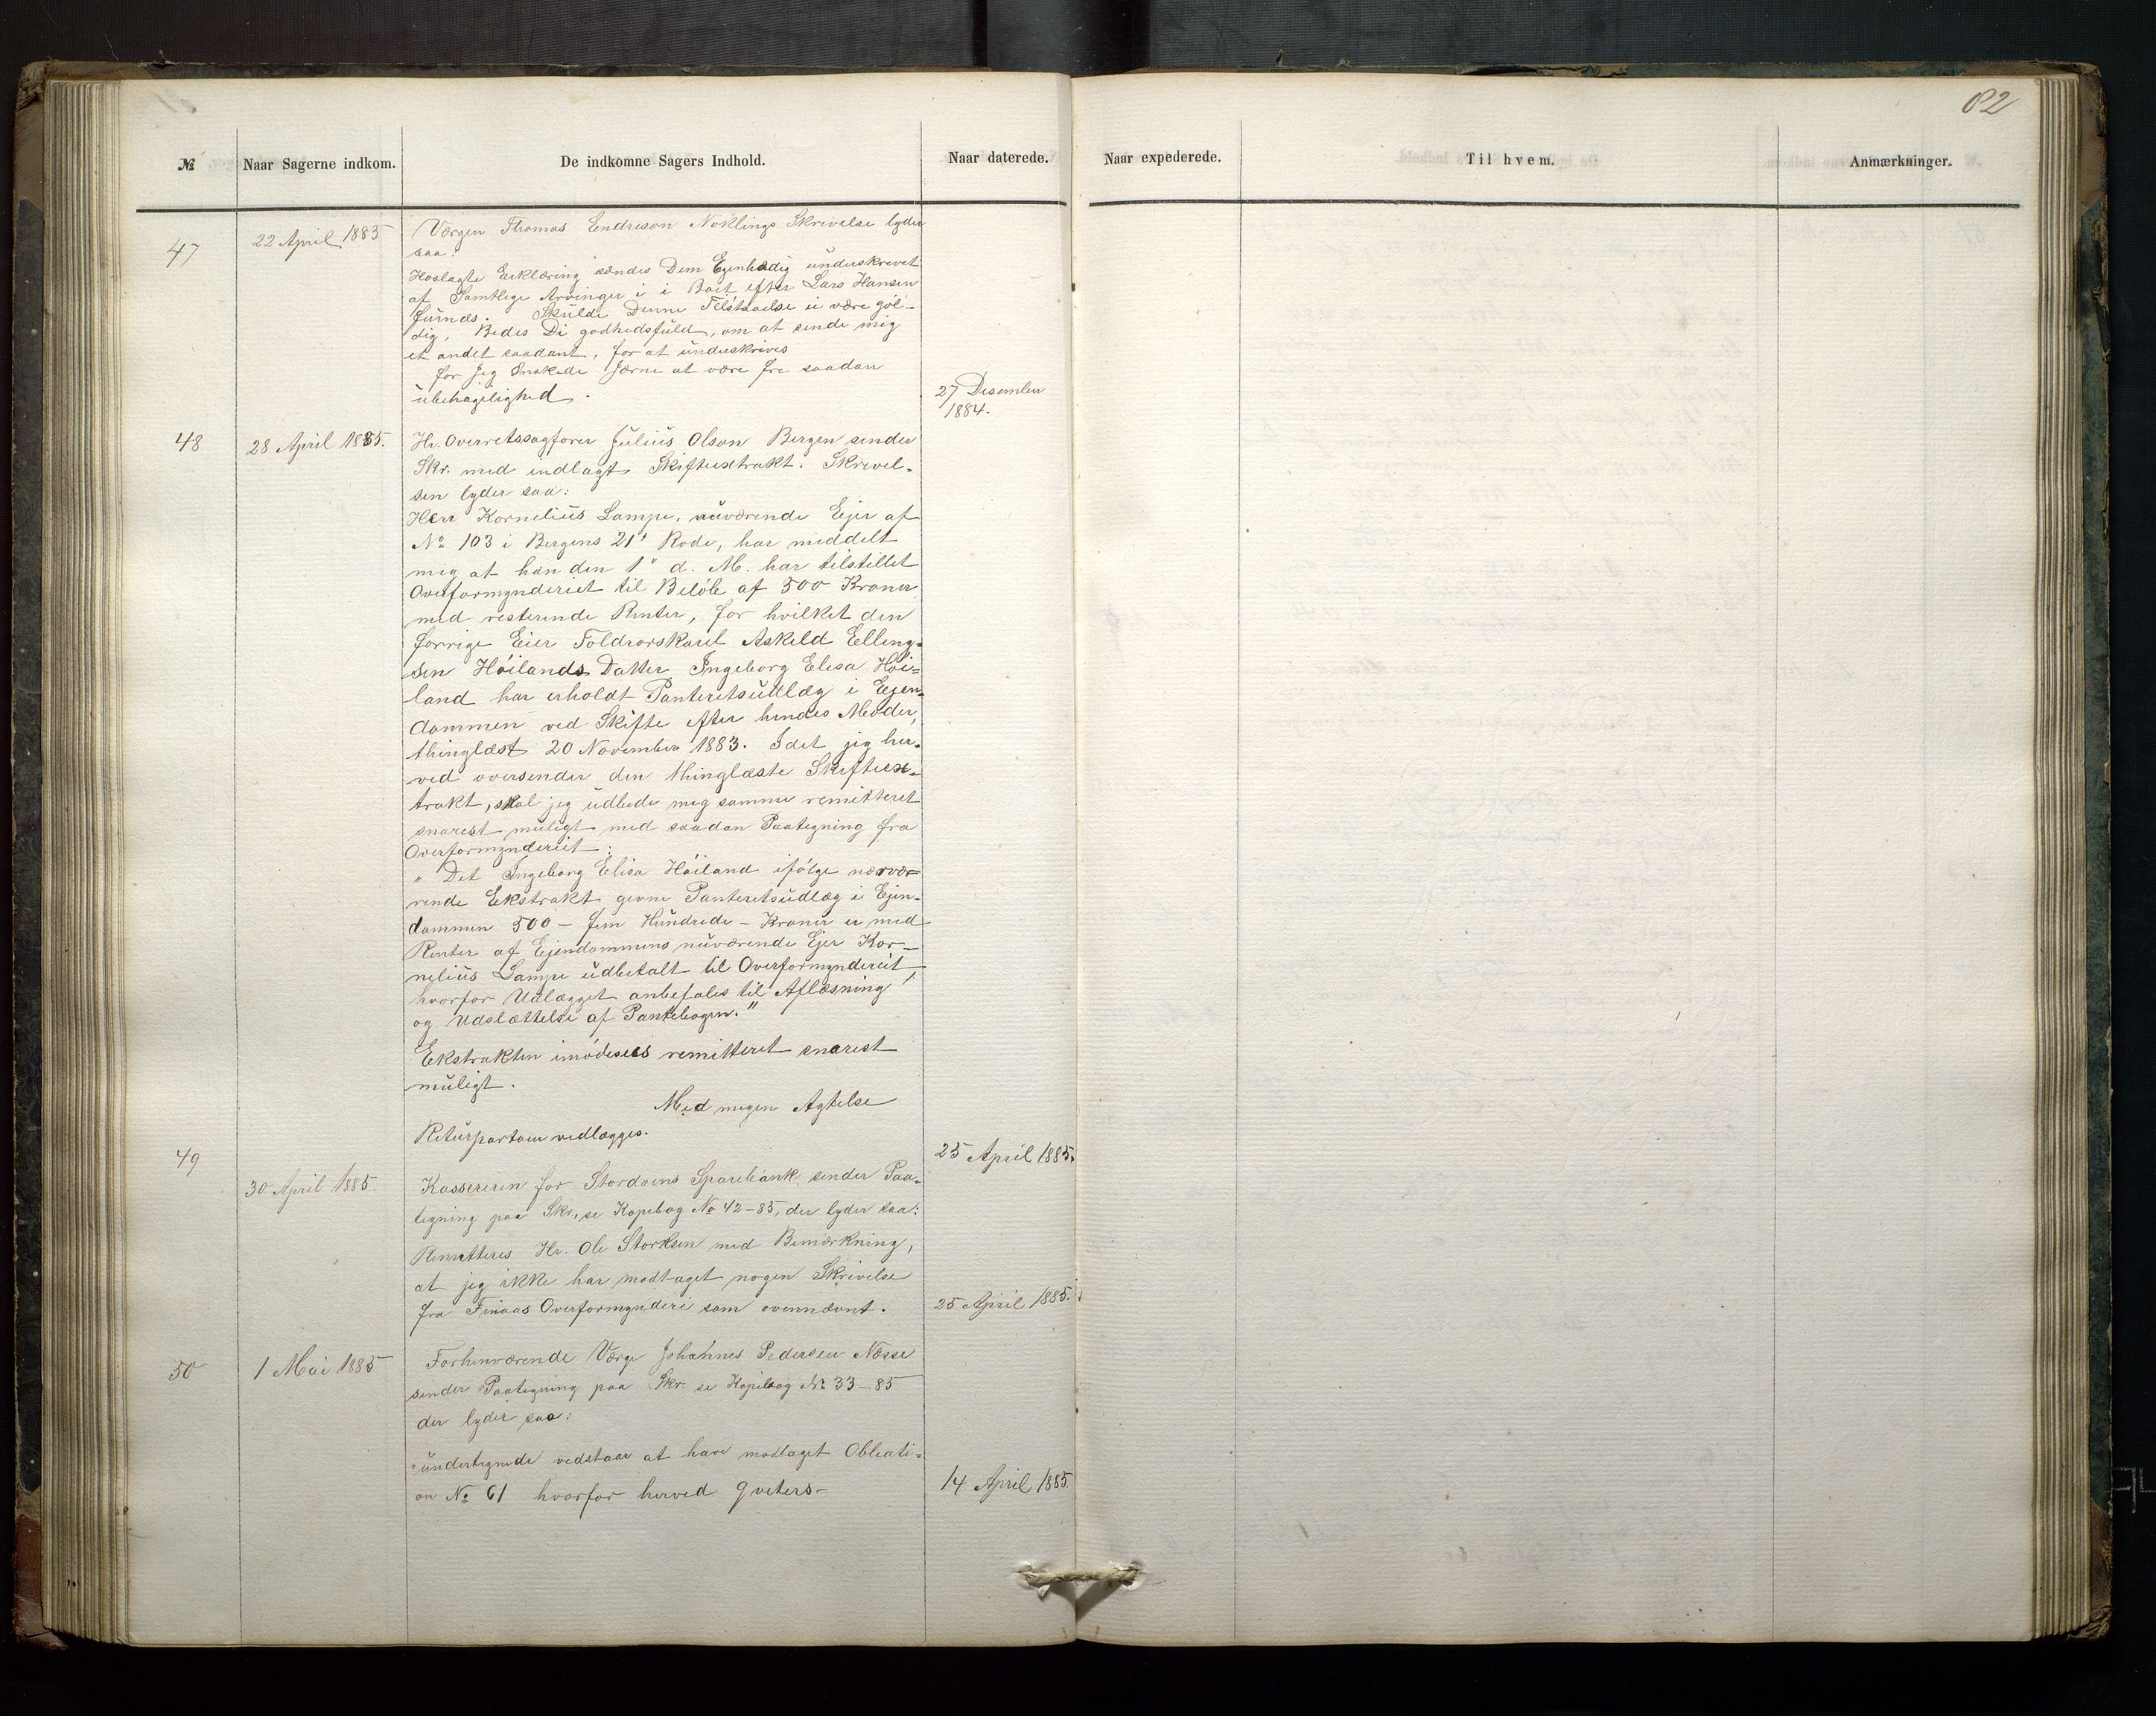 82
№ Naar Sagerne indkom. De indkomne Sagers Indhold. Naar daterede. Naar expederede. Til hvem. Anmærkninger.
47
22 April 1885
Værgen Thomas Endreson Nøklings Skrivelse lyder
saa:
Hoslagte Erklæring sendes Dem Egenhædig underskrevet
af Samtlige Arvinger i i Boet efter Lars Hansen
Furnæs. Skulde Denne Tilstaaelse ei være gól-
dig, Bedes Di godhedsfuld, om at sende mig
et andet saadant, for at underskrives
for jeg Ønskede Jærne at være fri saadan
ubehagelighed.
27 Desember
1884.
48
28 April 1885.
Hr. Overretssagfører Julius Olson Bergen sender
Skr. med indlagt Skifteextrakt. Skrivel-
sen lyder saa:
Herr Kornelius Lampe, nuværende Ejer af
No 103 i Bergens 21' Rode, har meddelt
mig at han den 1" d. M. har tilstillet
Overformynderiet til Beløb af 500 Kroner
med resterende Renter, for hvilket den
forrige Eier Toldrorskarl Askild Elling-
sen Høilands Datter Ingeborg Elisa Høi-
land har erholdt Panteretsudlæg i Ejen-
dommen ved Skifte efter hendes Moder,
thinglæst 20 November 1883. Idet jeg her-
ved oversender den thinglæste Skifteex-
trakt, skal jeg udbede mig samme remitteret
snarest muligt med saadan Paategning fra
Overformynderiet:
" Det Ingeborg Elisa Høiland ifølge nærvæ-
rende Ekstrakt givne Panteretsudlæg i Ejen-
dommen 500 - fem Hundrede - Kroner er med
Renter af Ejendommens nuværende Ejer Kor-
nelius Lampe udbetalt til Overformynderiet,
hvorfor Udlægget anbefales til Aflæsning
og Udslættelse af Pantebogen."
Ekstrakten imødesees remitteret snarest
muligt.
Med megen Agtelse
Returportoen vedlægges.
25 April 1885.
49
30 April 1885.
Kassereren for Stordøens Sparebank sender Paa-
tegning paa Skr., se Kopibog No 42-85, der lyder saa:
Remitteres Hr. Ole Storksen med Bemærkning,
at jeg ikke har modtaget nogen Skrivelse
fra Finaas Overformynderi som ovennævnt.
25 April 1885.
50
1 Mai 1885
Forhenværende Værge Johannes Pedersen Næsse
sender Paategning paa Skr. se Kopibog No 33-85
der lyder saa:
"undertegnede vedstaar at have modtaget Obliati-
on No 61 hvorfor herved qviters-
14 April 1885.